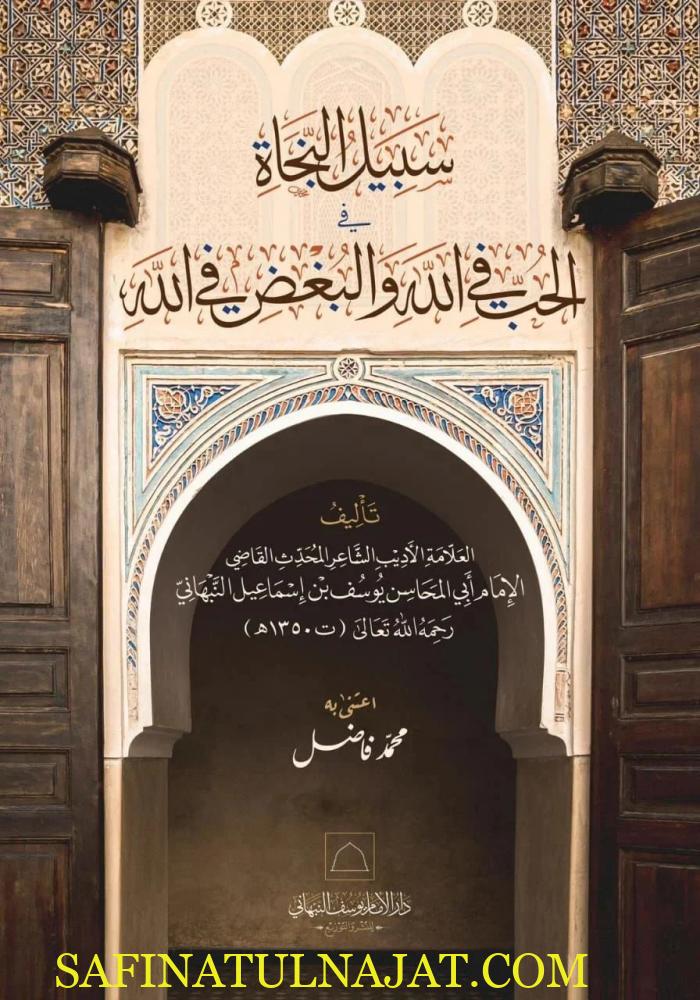 سَبِيلُ النَّجَاةِ
فِي
الحُبِّ فِي اللَّهِ وَالبُغْضِ فِي اللَّهِ
تَأْلِيفُ
العَلَّامَةِ الأَدِيبِ الشَّاعِرِ المُحَدِّثِ القَاضِي
الإِمَامِ أَبِي المَحَاسِن يُوسُف بْن إِسْمَاعِيل النَّبْهَانِيّ
رَحِمَهُ اللهُ تَعَالَى (ت ١٣٥٠ هـ)
اعتنى به
محمّد فاضل
دار الإمام يوسف النبهاني
للنشر والتوزيع
SAFINATULNAJAT.COM